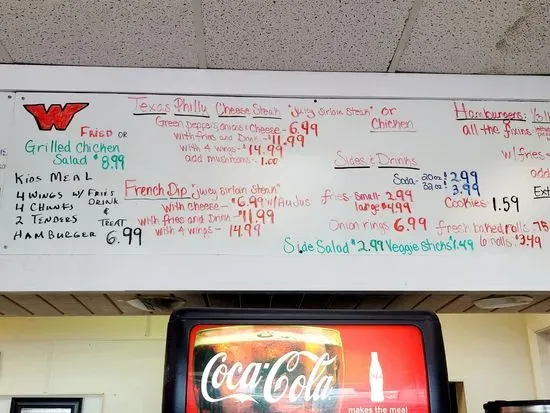 W
FRIED OR
Grilled Chicken
Salad $8.99
Kids Meal
4 Wings w/ Fries
4 Chunks Drink
2 Tenders & Treat
Hamburger 6.99
Texas Philly Cheese Steak "juicy sirloin steak" or Chicken
Green peppers, onions & cheese - 6.99
with fries and Drink - 11.99
with 4 wings - 14.99
add mushrooms - 1.00
French Dip "juicy sirloin steak"
with cheese - $6.99 w/ Au Jus
with fries and Drink - $11.99
with 4 wings - 14.99
Sides & Drinks
Soda 20oz 2.99
32oz 3.99
fries small 2.99
large $4.99
Cookies 1.59
Onion rings 6.99
fresh baked rolls .75
6 rolls $3.49
Side Salad $2.99 Veggie sticks $1.49
Hamburgers: 1/3
all the fixins
w/fries
add
Ext
Coca-Cola
makes the meal